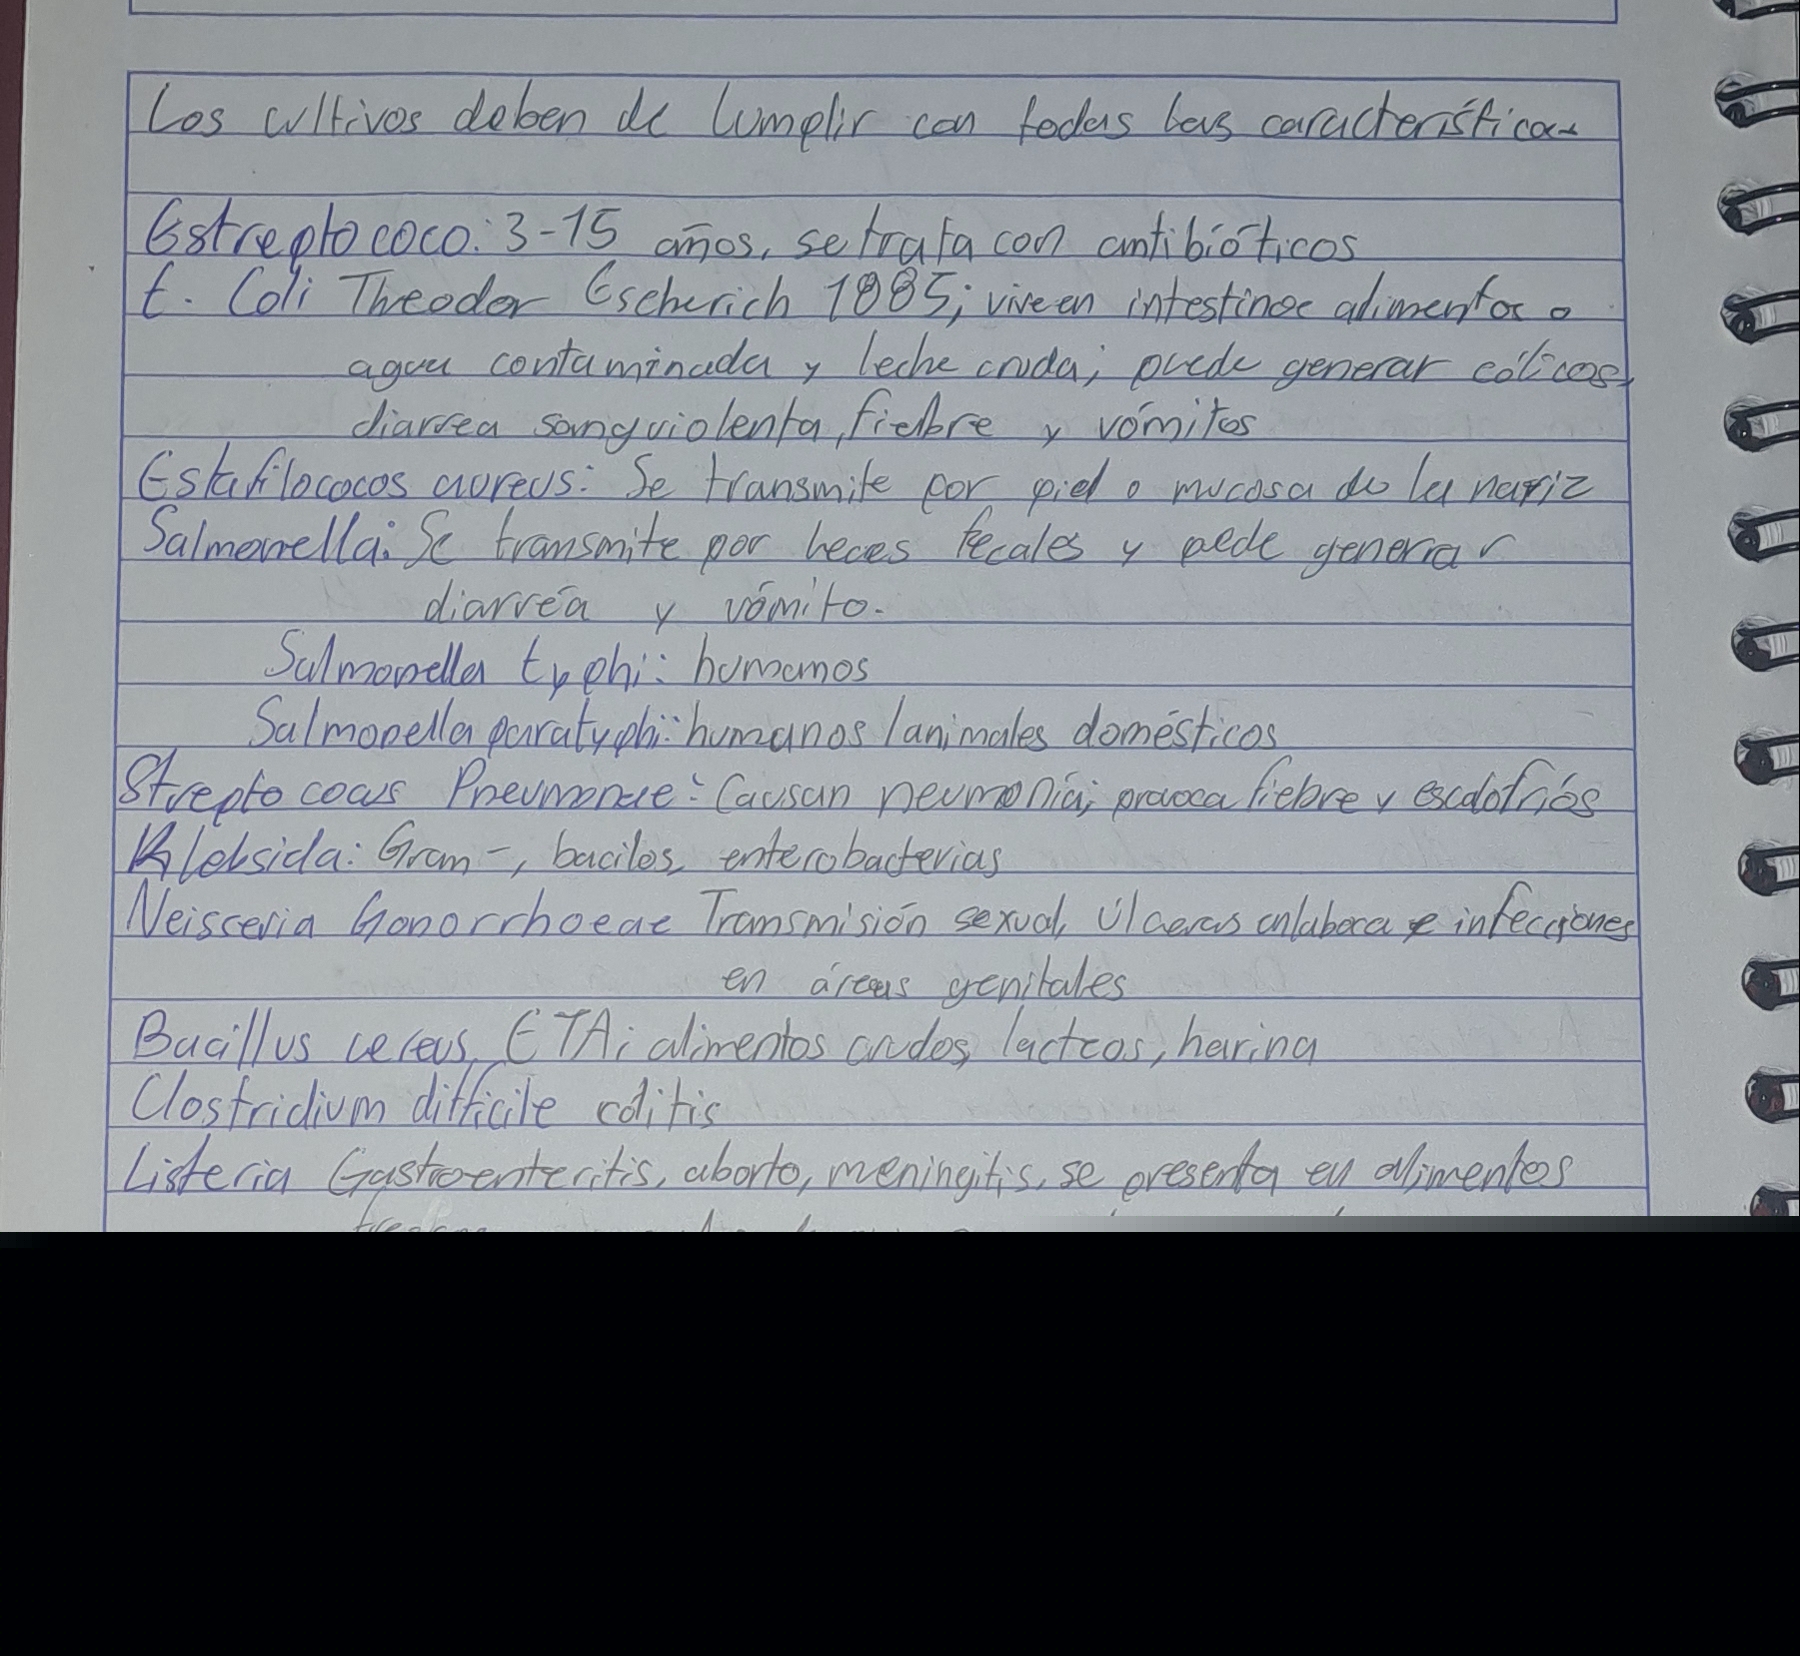 Los cultivos deben de cumplir con todas las características
Estreptococo: 3-15 años, se trata con antibióticos
E. Coli Theodor Escherich 1885; vive en intestinos alimentos o
agua contaminada y leche cruda; puede generar cólicos,
diarrea sanguiolenta, fiebre y vómitos
Estafilococos aureus: Se transmite por piel o mucosa de la nariz
Salmonella: Se transmite por heces fecales y pede generar
diarrea y vómito.
Salmonella typhi: humanos
Salmonella paratyphi: humanos / animales domésticos
Streptococus Pneumonae: Causan neumonía; provoca fiebre y escalofríos
Klebsida: Gram -, bacilos, enterobacterias
Neisceria Gonorrhoeae Transmisión sexual, Úlceras en la boca e infecciones
en áreas genitales
Bacillus cereus, ETA; alimentos crudos, lacteos, harina
Clostridium difficile colitis
Listeria Gastroenteritis, aborto, meningitis, se presenta en alimentos